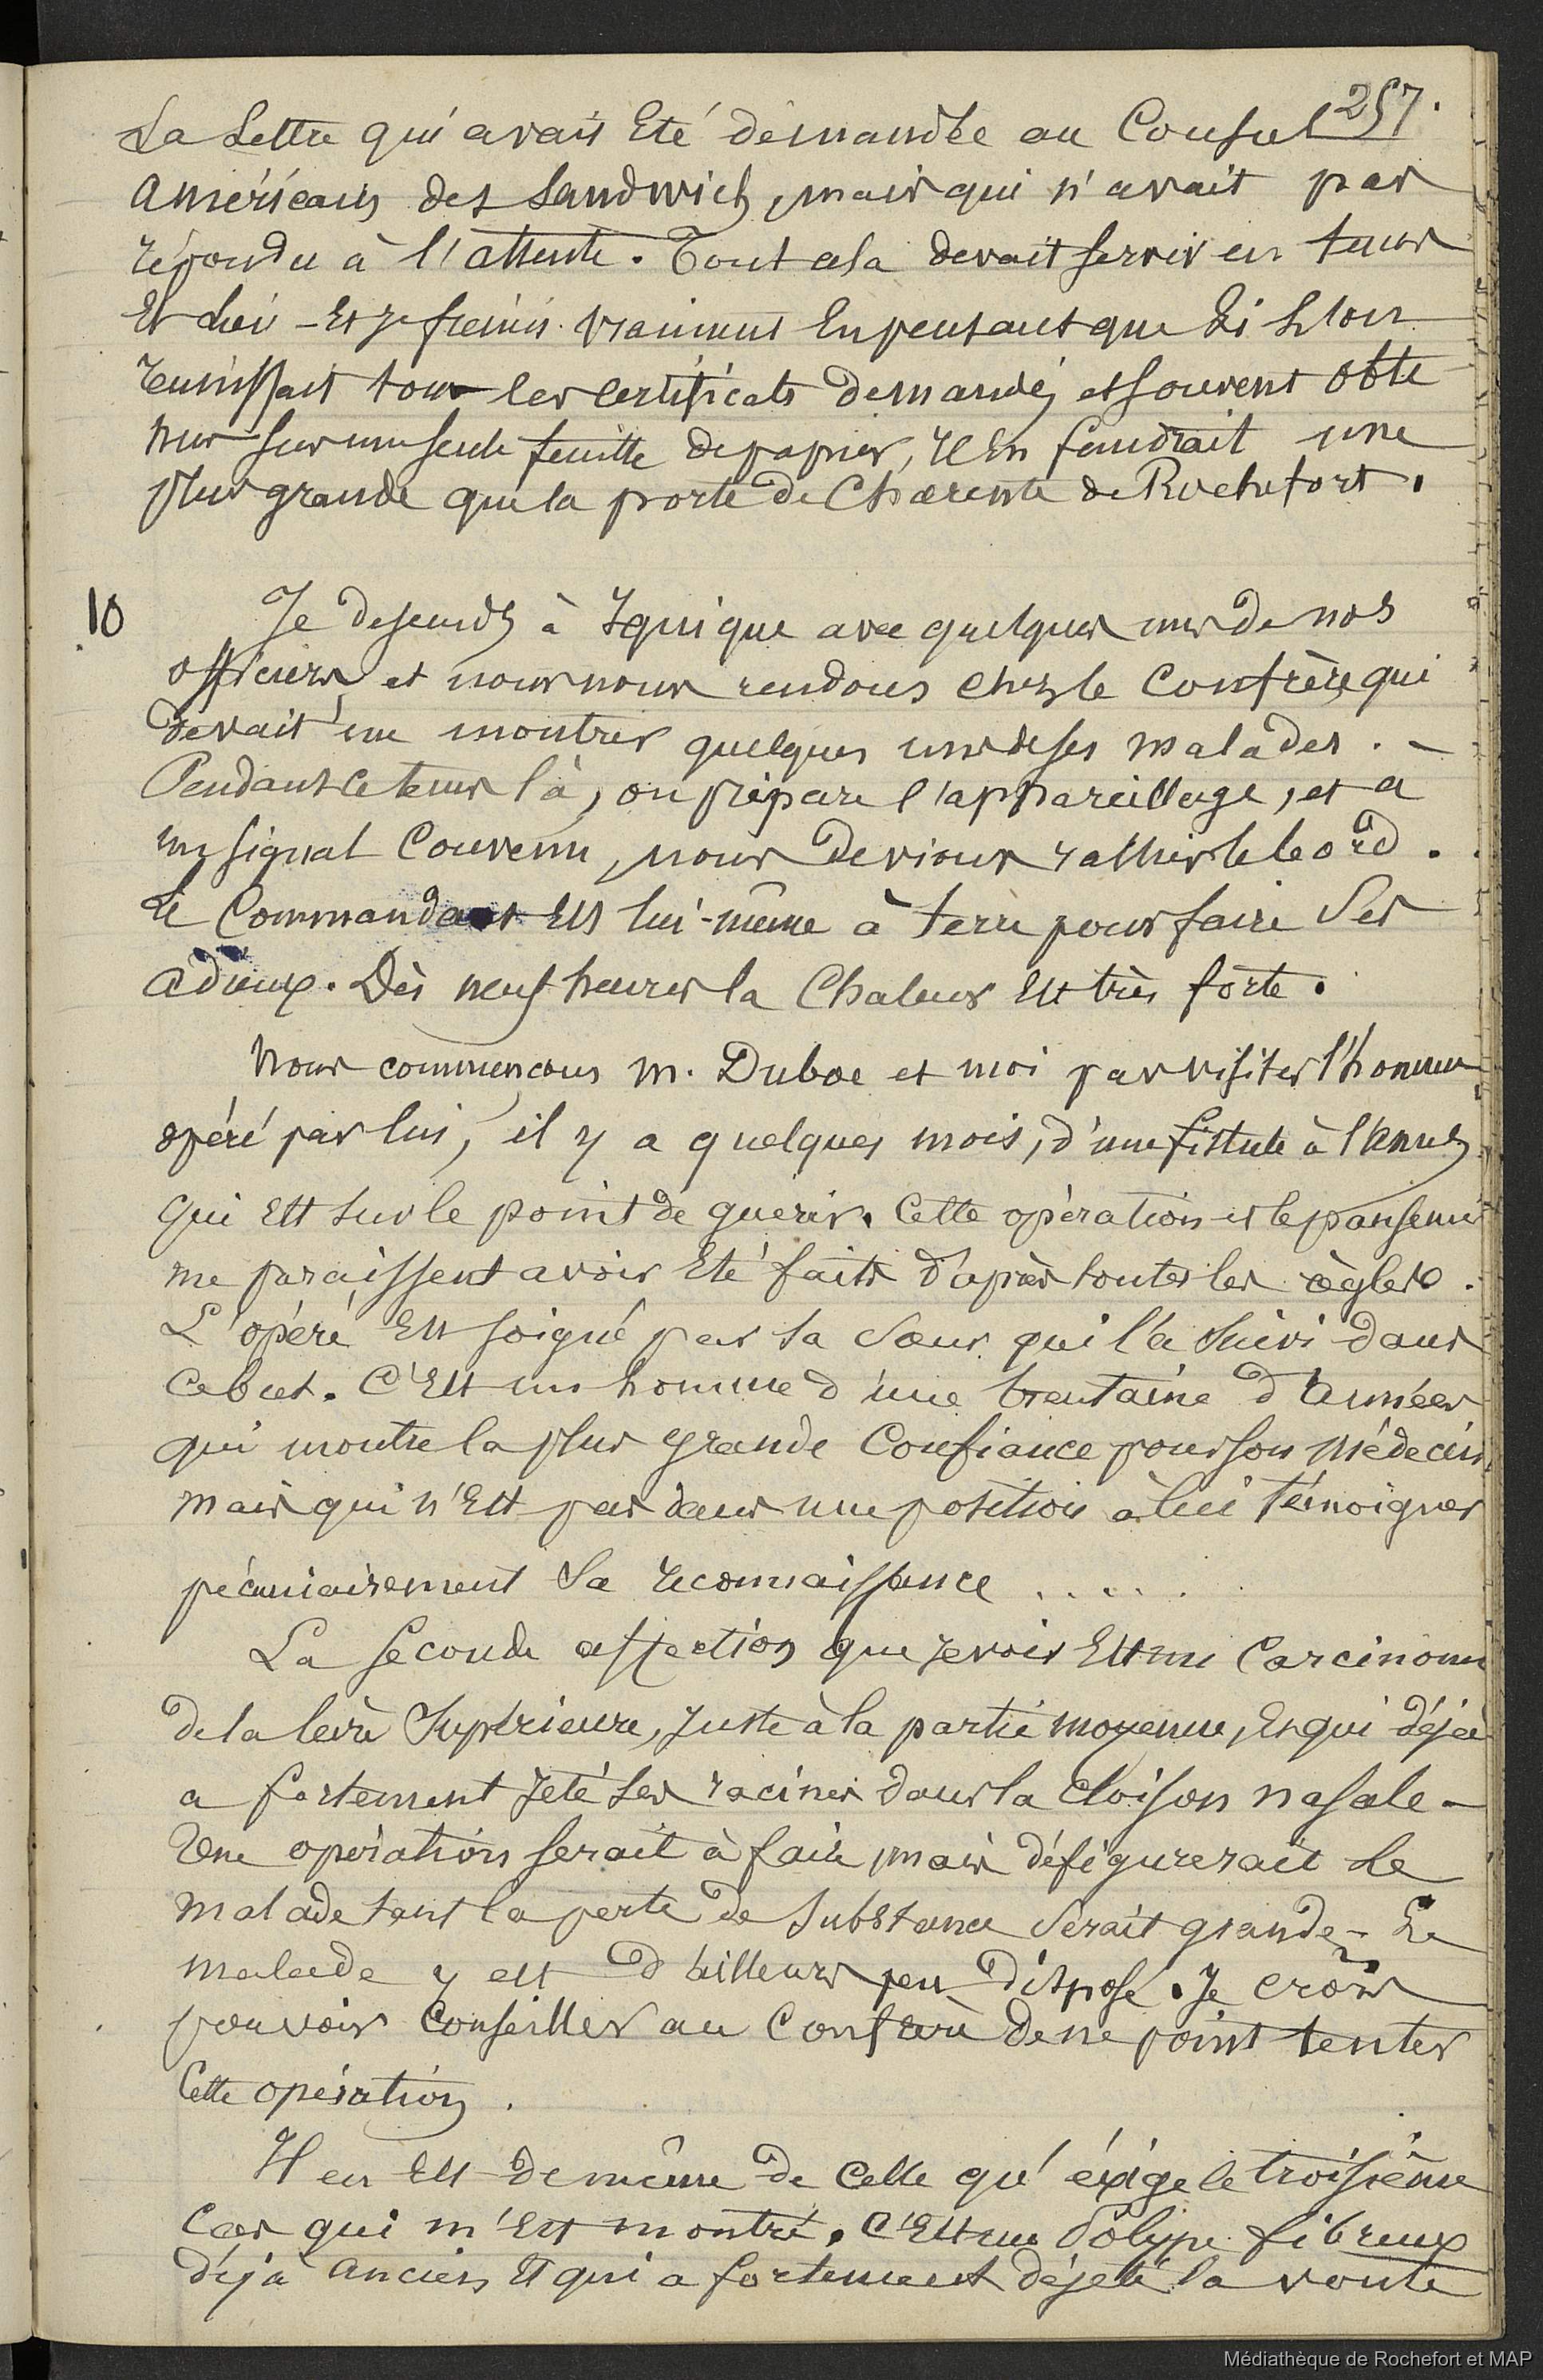 257.
La lettre qui avait Eté demandée au Consul
américain des Sandwich, mais qui n'avait pas
répondu à l'attente. Tout cela devait servir en tems
Et lieu - Et je frémis vraiment En pensant que Si l'on
reunissait tous les certificats demandés et souvent obte
nus sur une seule feuille de papier, il En faudrait une
plus grande que la porte de Charente de Rochefort.
10 Je descends à Iquique avec quelques uns de nos
officiers et nous nous rendons chez le Confrère qui
devait me montrer quelques uns de ses malades. -
Pendant ce tems là, on prépare l'appareillage, et à
un signal Convenu, nous devions rallier le bord.
Le Commandant Est lui-même à terre pour faire Ses
adieux. Dès neuf heures la Chaleur Est très forte.
Nous commençons M. Duboe et moi par visiter l'homme
opéré par lui, il y a quelques mois, d'une fistule à l'anus
qui Est sur le point de guérir. Cette opération et le panseme
me paraissent avoir Eté faits d'après toutes les règles.
L'opéré Est soigné par sa Sœur qui l'a Suivi dans
ce but. C'Est un homme d'une trentaine d'années
qui montre la plus grande Confiance pour son Médecin
mais qui n'Est pas dans une position à lui témoigner
pécuniairement Sa reconnaissance .....
La seconde affection que je vois Est un Carcinome
de la lèvre Supérieure, juste à la partie moyenne, Et qui déjà
a fortement jeté ses racines dans la cloison nasale -
Une opération serait à faire, mais défigurerait le
malade tant la perte de Substance Serait grande - Le
malade y est d'ailleurs peu disposé. Je crois
pouvoir Conseiller au Confrère de ne point tenter
Cette opération.
Il en Est de même de Celle qu'éxige le troisième
Cas qui m'Est montré. C'Est un Polype fibreux
déjà ancien Et qui a fortement déjeté la voute
Médiathèque de Rochefort et MAP